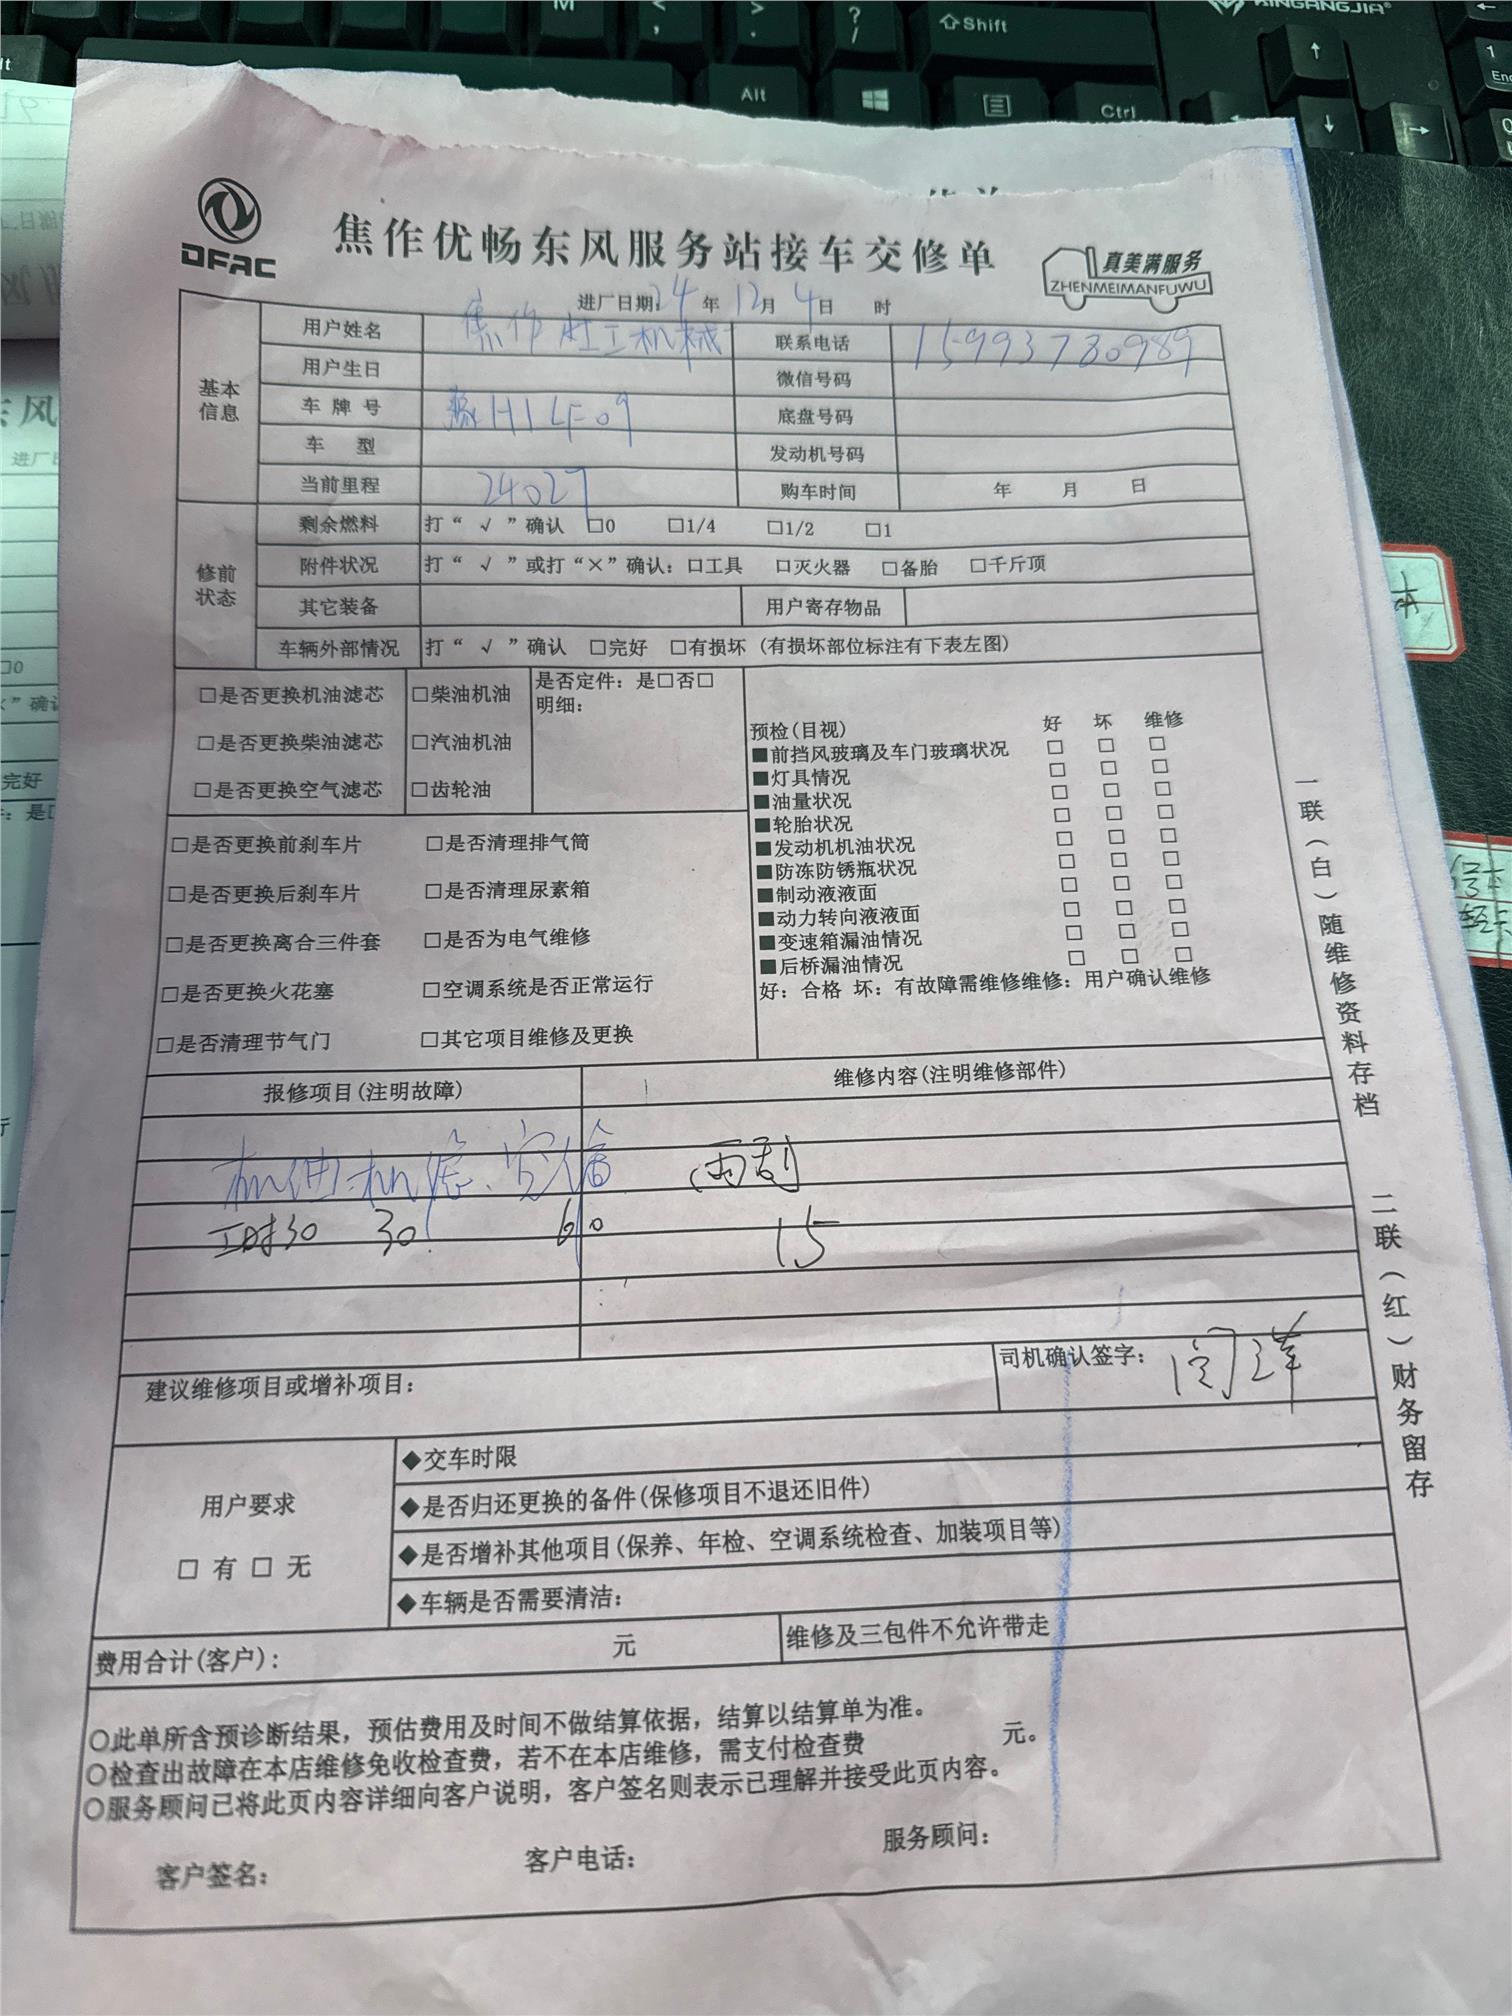 M
Shift
Alt
Ctrl
DFAC
焦作优畅东风服务站接车交修单
真美满服务
ZHENMEIMANFUWU
进厂日期: 24 年 12 月 4 日 时
基本信息
用户姓名 焦作 机械 联系电话 15993730989
用户生日 微信号码
车牌号 豫H1LF09 底盘号码
车 型 发动机号码
当前里程 24027 购车时间 年 月 日
修前状态
剩余燃料 打“√”确认 □0 □1/4 □1/2 □1
附件状况 打“√”或打“×”确认: □工具 □灭火器 □备胎 □千斤顶
其它装备 用户寄存物品
车辆外部情况 打“√”确认 □完好 □有损坏 (有损坏部位标注有下表左图)
□是否更换机油滤芯 □柴油机油 是否定件: 是□否□
明细:
□是否更换柴油滤芯 □汽油机油
□是否更换空气滤芯 □齿轮油
□是否更换前刹车片 □是否清理排气筒
□是否更换后刹车片 □是否清理尿素箱
□是否更换离合三件套 □是否为电气维修
□是否更换火花塞 □空调系统是否正常运行
□是否清理节气门 □其它项目维修及更换
预检(目视) 好 坏 维修
■前挡风玻璃及车门玻璃状况 □ □ □
■灯具情况 □ □ □
■油量状况 □ □ □
■轮胎状况 □ □ □
■发动机机油状况 □ □ □
■防冻防锈瓶状况 □ □ □
■制动液液面 □ □ □
■动力转向液液面 □ □ □
■变速箱漏油情况 □ □ □
■后桥漏油情况 □ □ □
好: 合格 坏: 有故障需维修维修: 用户确认维修
报修项目(注明故障) 维修内容(注明维修部件)
机油、机滤、空滤 雨刮
工时30 30 60 15
建议维修项目或增补项目:
司机确认签字: 闫洋
用户要求
□ 有 □ 无
◆交车时限
◆是否归还更换的备件(保修项目不退还旧件)
◆是否增补其他项目(保养、年检、空调系统检查、加装项目等)
◆车辆是否需要清洁:
费用合计(客户): 元 维修及三包件不允许带走
○此单所含预诊断结果，预估费用及时间不做结算依据，结算以结算单为准。
○检查出故障在本店维修免收检查费，若不在本店维修，需支付检查费 元。
○服务顾问已将此页内容详细向客户说明，客户签名则表示已理解并接受此页内容。
客户签名: 客户电话: 服务顾问:
一联(白)随维修资料存档 二联(红)财务留存